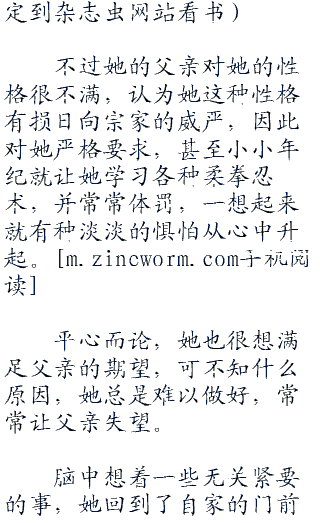 定到杂志虫网站看书）
不过她的父亲对她的性
格很不满，认为她这种性格
有损日向宗家的威严，因此
对她严格要求，甚至小小年
纪就让她学习各种柔拳忍
术，并常常体罚，一想起来
就有种淡淡的惧怕从心中升
起。[m.zincworm.com手机阅
读]
平心而论，她也很想满
足父亲的期望，可不知什么
原因，她总是难以做好，常
常让父亲失望。
脑中想着一些无关紧要
的事，她回到了自家的门前